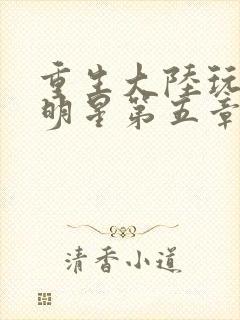 重生大陸玩
明星第五章
清香小道